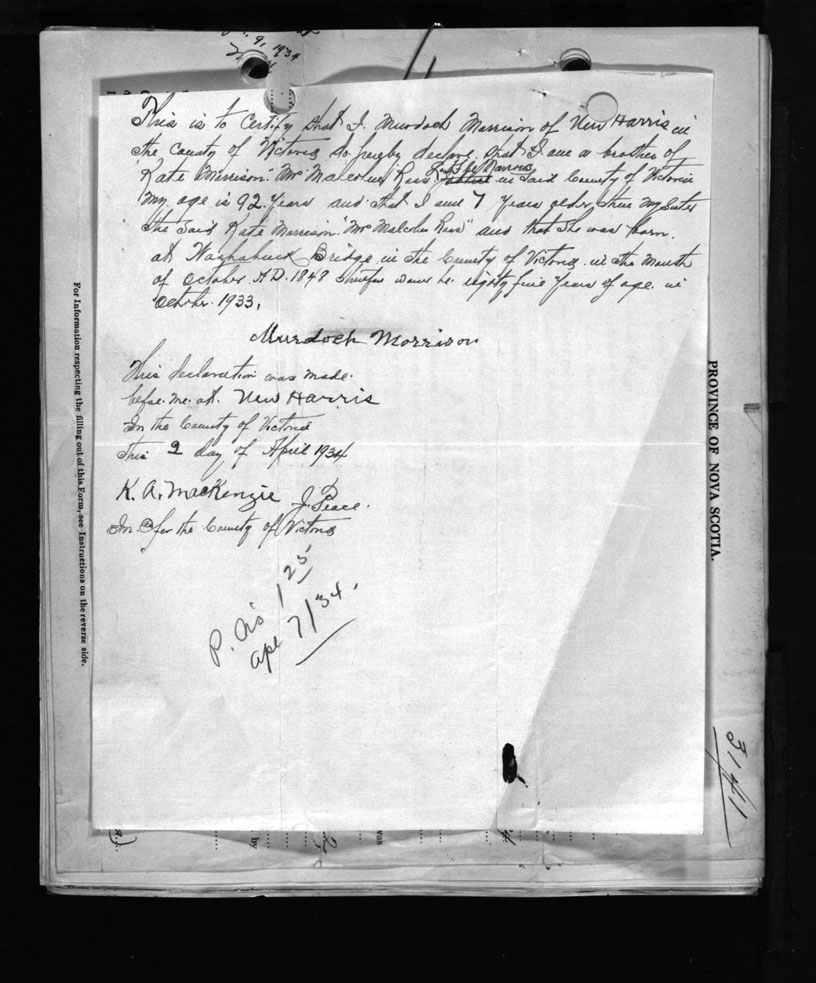 9, 1934
This is to Certify that I. Murdoch Morrison of New Harris in
the County of Victoria do hereby declare that I am a brother of
Kate Morrison. "Mrs Malcolm Ross" Little Narrows in Said County of Victoria
my age is 92 Years and that I am 7 Years older than my Sister
the Said Kate Morrison. "Mrs Malcolm Ross" and that She was born.
at Washabuck Bridge in the County of Victoria. in the Month
of October A.D. 1848 therefore would be eighty five Years of age in
October 1933.
Murdoch Morrison
This declaration was made.
before me. at New Harris
In the County of Victoria
This 2 day of April 1934
K. A. MacKenzie J. Peace.
In & for the County of Victoria
125
Apl 7/34.
For Information respecting the filling out of this Form, see Instructions on the reverse side.
PROVINCE OF NOVA SCOTIA.
by
was